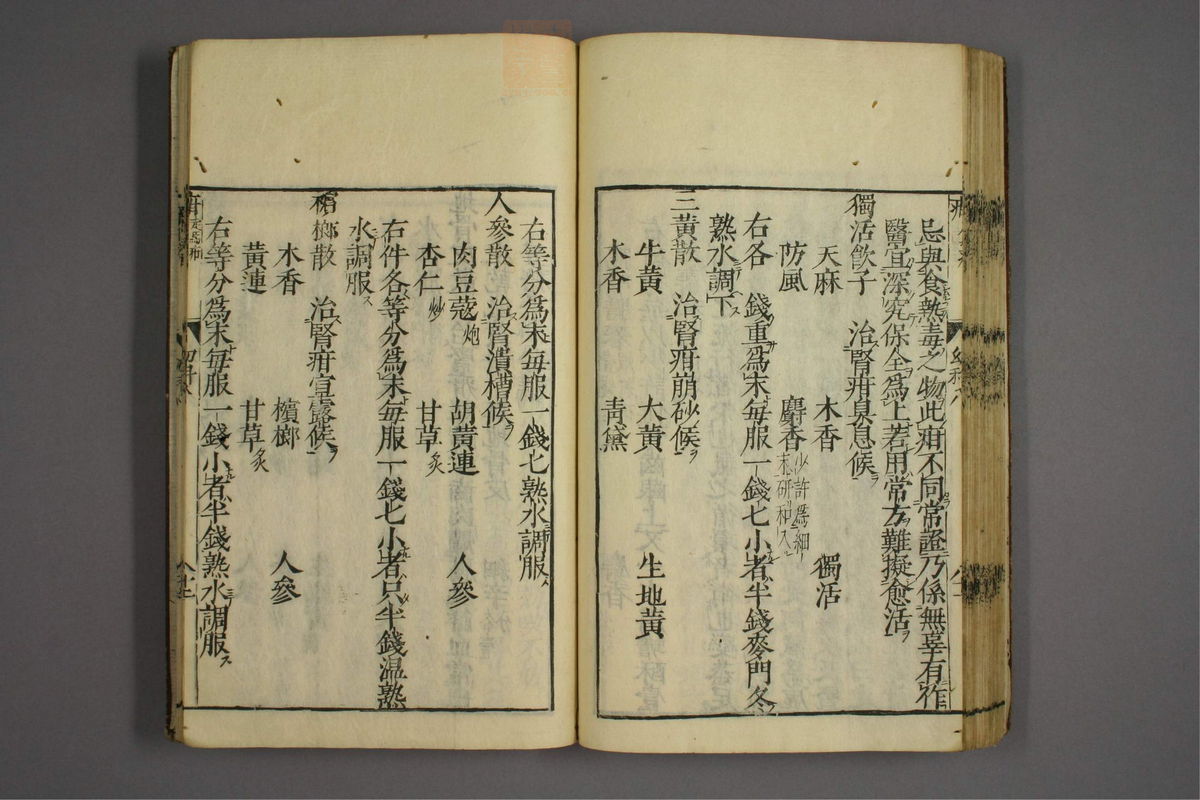 忌與食熱毒之物此疳不同常證乃係無辜有作
醫宜深究保全爲上若用常方難擬愈活
獨活飲子 治腎疳臭息候
天麻 木香 獨活
防風 麝香少許爲細末研和入
右各 錢重爲末每服一錢匕小者半錢麥門冬
熟水調下
三黃散 治腎疳崩砂候
牛黃 大黃 生地黃
木香 青黛
右等分爲末每服一錢匕熟水調服
人參散 治腎潰槽候
肉豆蔻炮 胡黃連 人參
杏仁炒 甘草炙
右件各等分爲末每服一錢匕小者只半錢温熟
水調服
檳榔散 治腎疳宣露候
木香 檳榔 人參
黃連 甘草炙
右等分爲末每服一錢小者半錢熟水調服